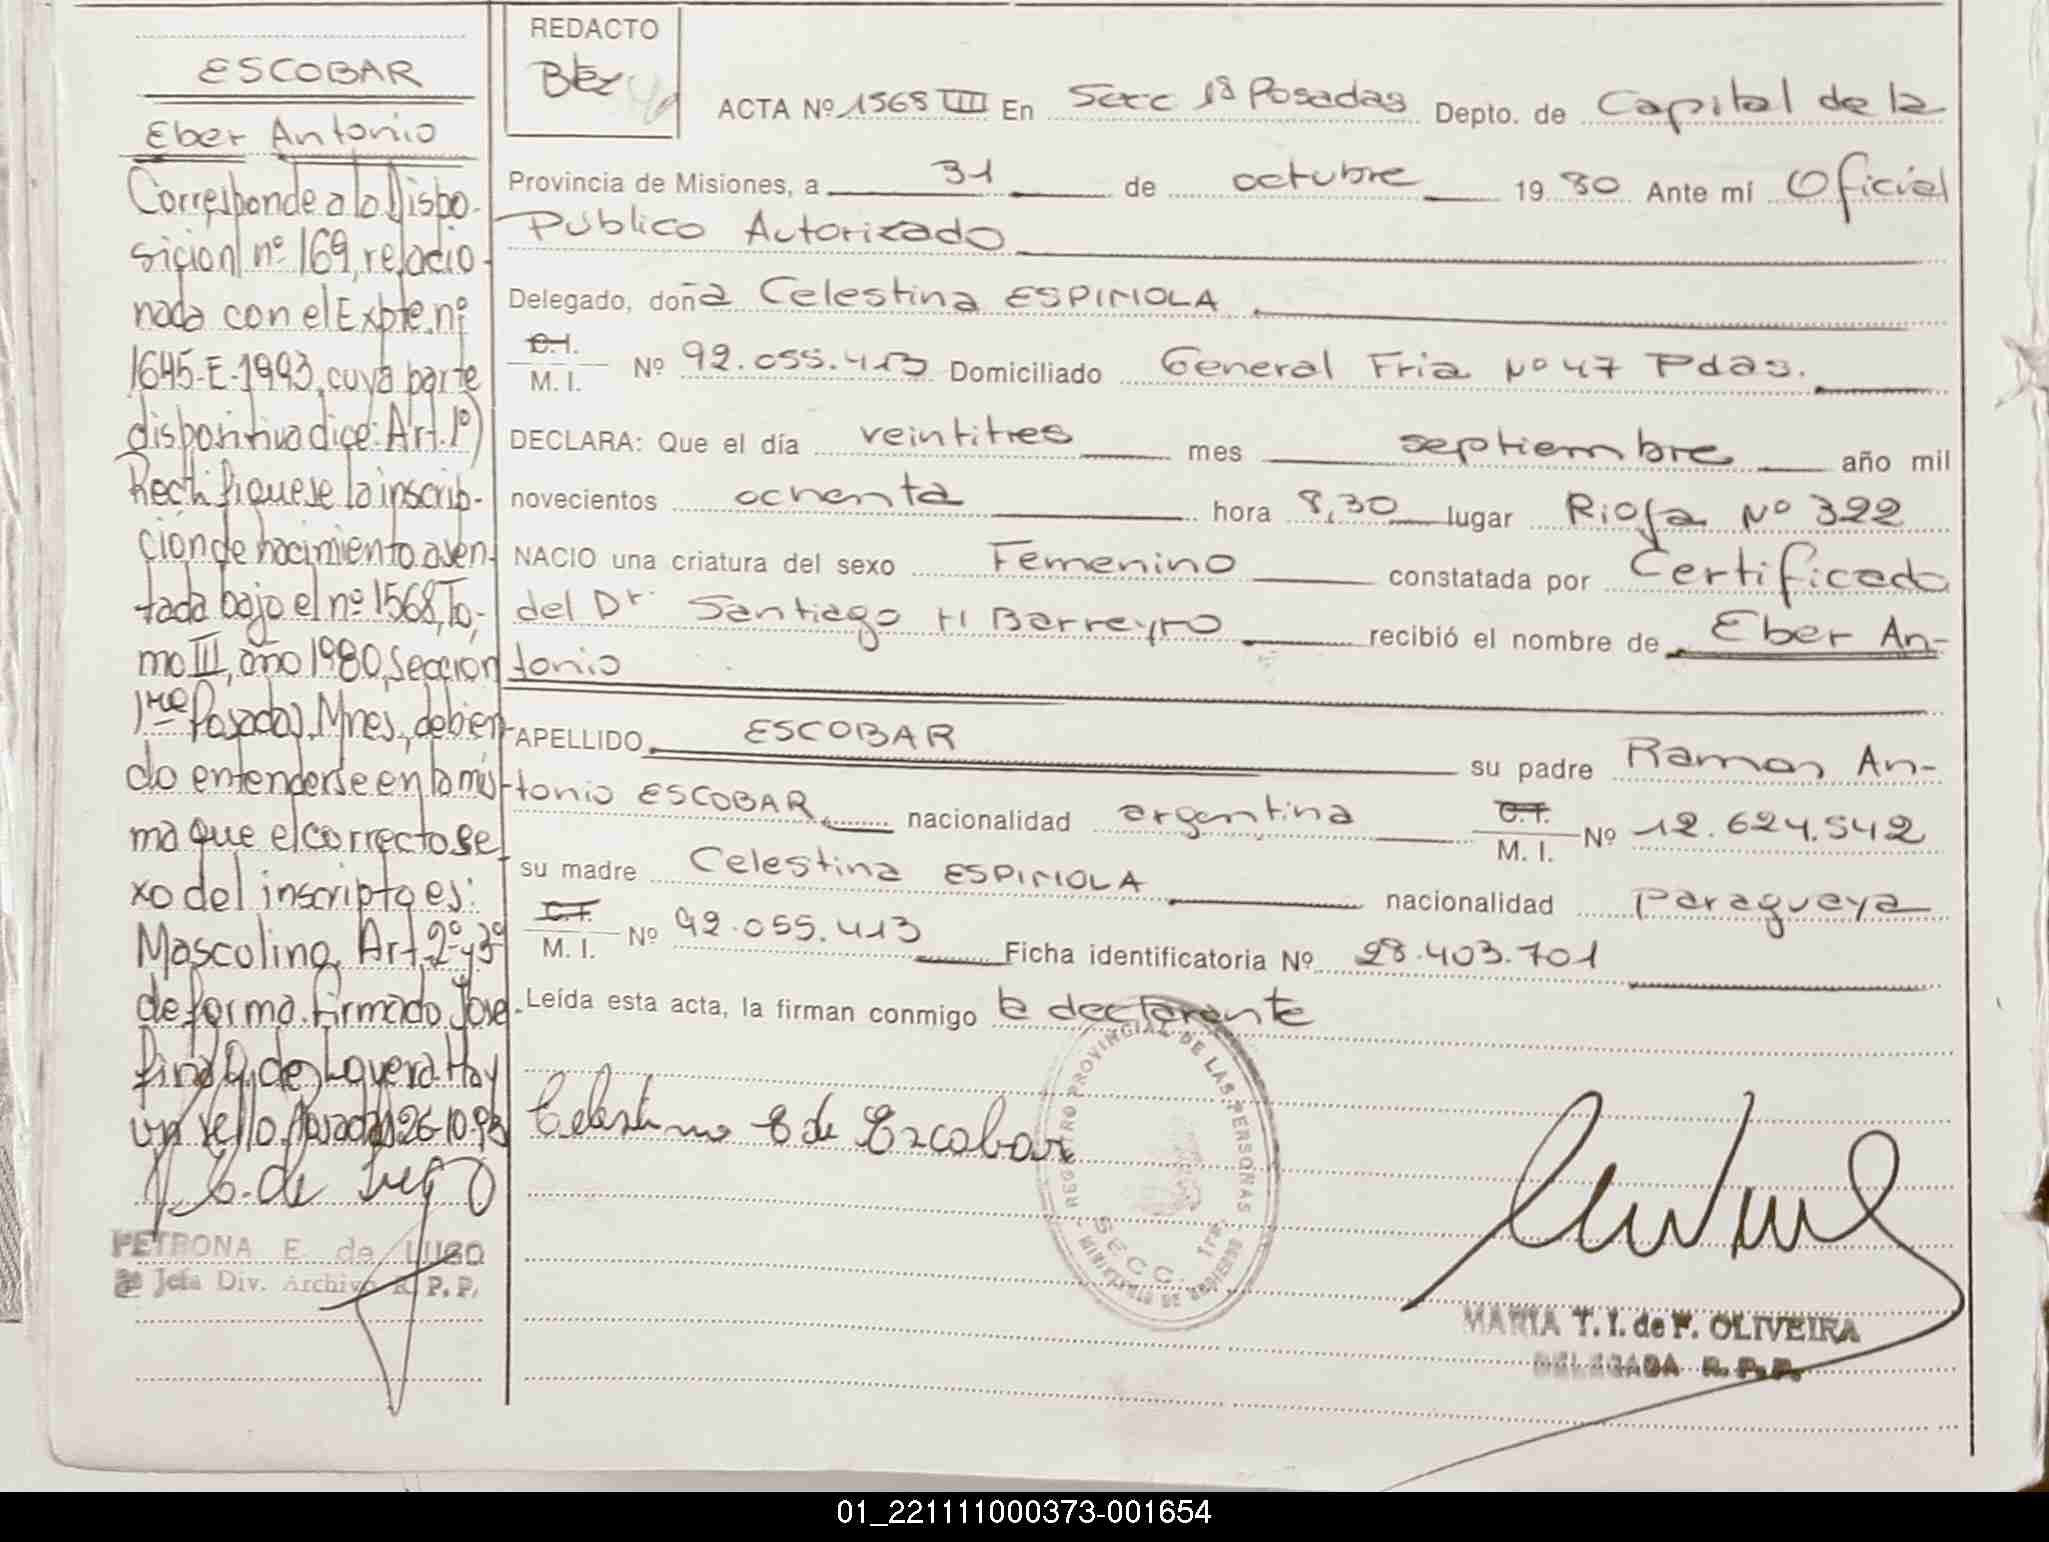 ESCOBAR
Eber Antonio
Corresponde a la Dispo-
sicion nº 169, relacio-
nada con el Expte. nº
1645-E-1993, cuya parte
dispositiva dice: Art. 1º)
Rectifiquese la inscrip-
cion de nacimiento asen-
tada bajo el nº 1568, To-
mo III, año 1980, Seccion
1ra Posadas, Mnes., debien-
do entenderse en la mis-
ma que el correcto se-
xo del inscripto es:
Mascolino. Art. 2º y 3º
de forma. Firmado Jose-
fina de Lovera. Hay
un sello. Posadas 26-10-93
PETRONA E. de LUGO
Jefa Div. Archivo R. P. P.
REDACTO
ACTA Nº 1568 TIII En Secc 1ª Posadas Depto. de Capital de la
Provincia de Misiones, a 31 de octubre 1980 Ante mí Oficial
Público Autorizado
Delegado, doña Celestina ESPINOLA
C.I.
M. I. Nº 92.055.413 Domiciliado General Fria Nº 47 Pdas.
DECLARA: Que el día veintitres mes septiembre año mil
novecientos ochenta hora 8,30 lugar Rioja Nº 322
NACIO una criatura del sexo Femenino constatada por Certificado
del Dr. Santiago H Barreyro recibió el nombre de Eber An-
tonio
APELLIDO ESCOBAR su padre Ramon An-
tonio ESCOBAR nacionalidad argentina C.I. M. I. Nº 12.624.542
su madre Celestina ESPINOLA nacionalidad Paraguaya
C.I. M. I. Nº 92.055.413 Ficha identificatoria Nº 28.403.701
Leída esta acta, la firman conmigo la declarante
Celestina E de Escobar
REGISTRO PROVINCIAL DE LAS PERSONAS
SECC. 1ra.
MARIA T. I. de F. OLIVEIRA
DELEGADA R. P. P.
01_221111000373-001654